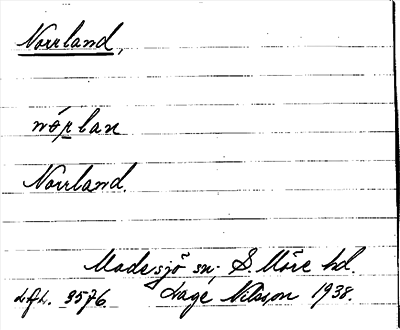 Norrland,
nórlan
Norrland.
Madesjö sn; S. Möre hd.
LfL. 3576. Lage Nilsson 1938.